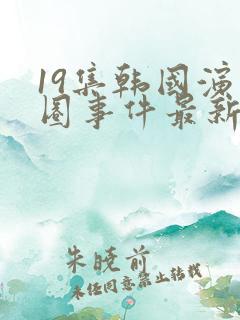 19集韩国演
圈事件最新
朱晓前
未经同意禁止转载